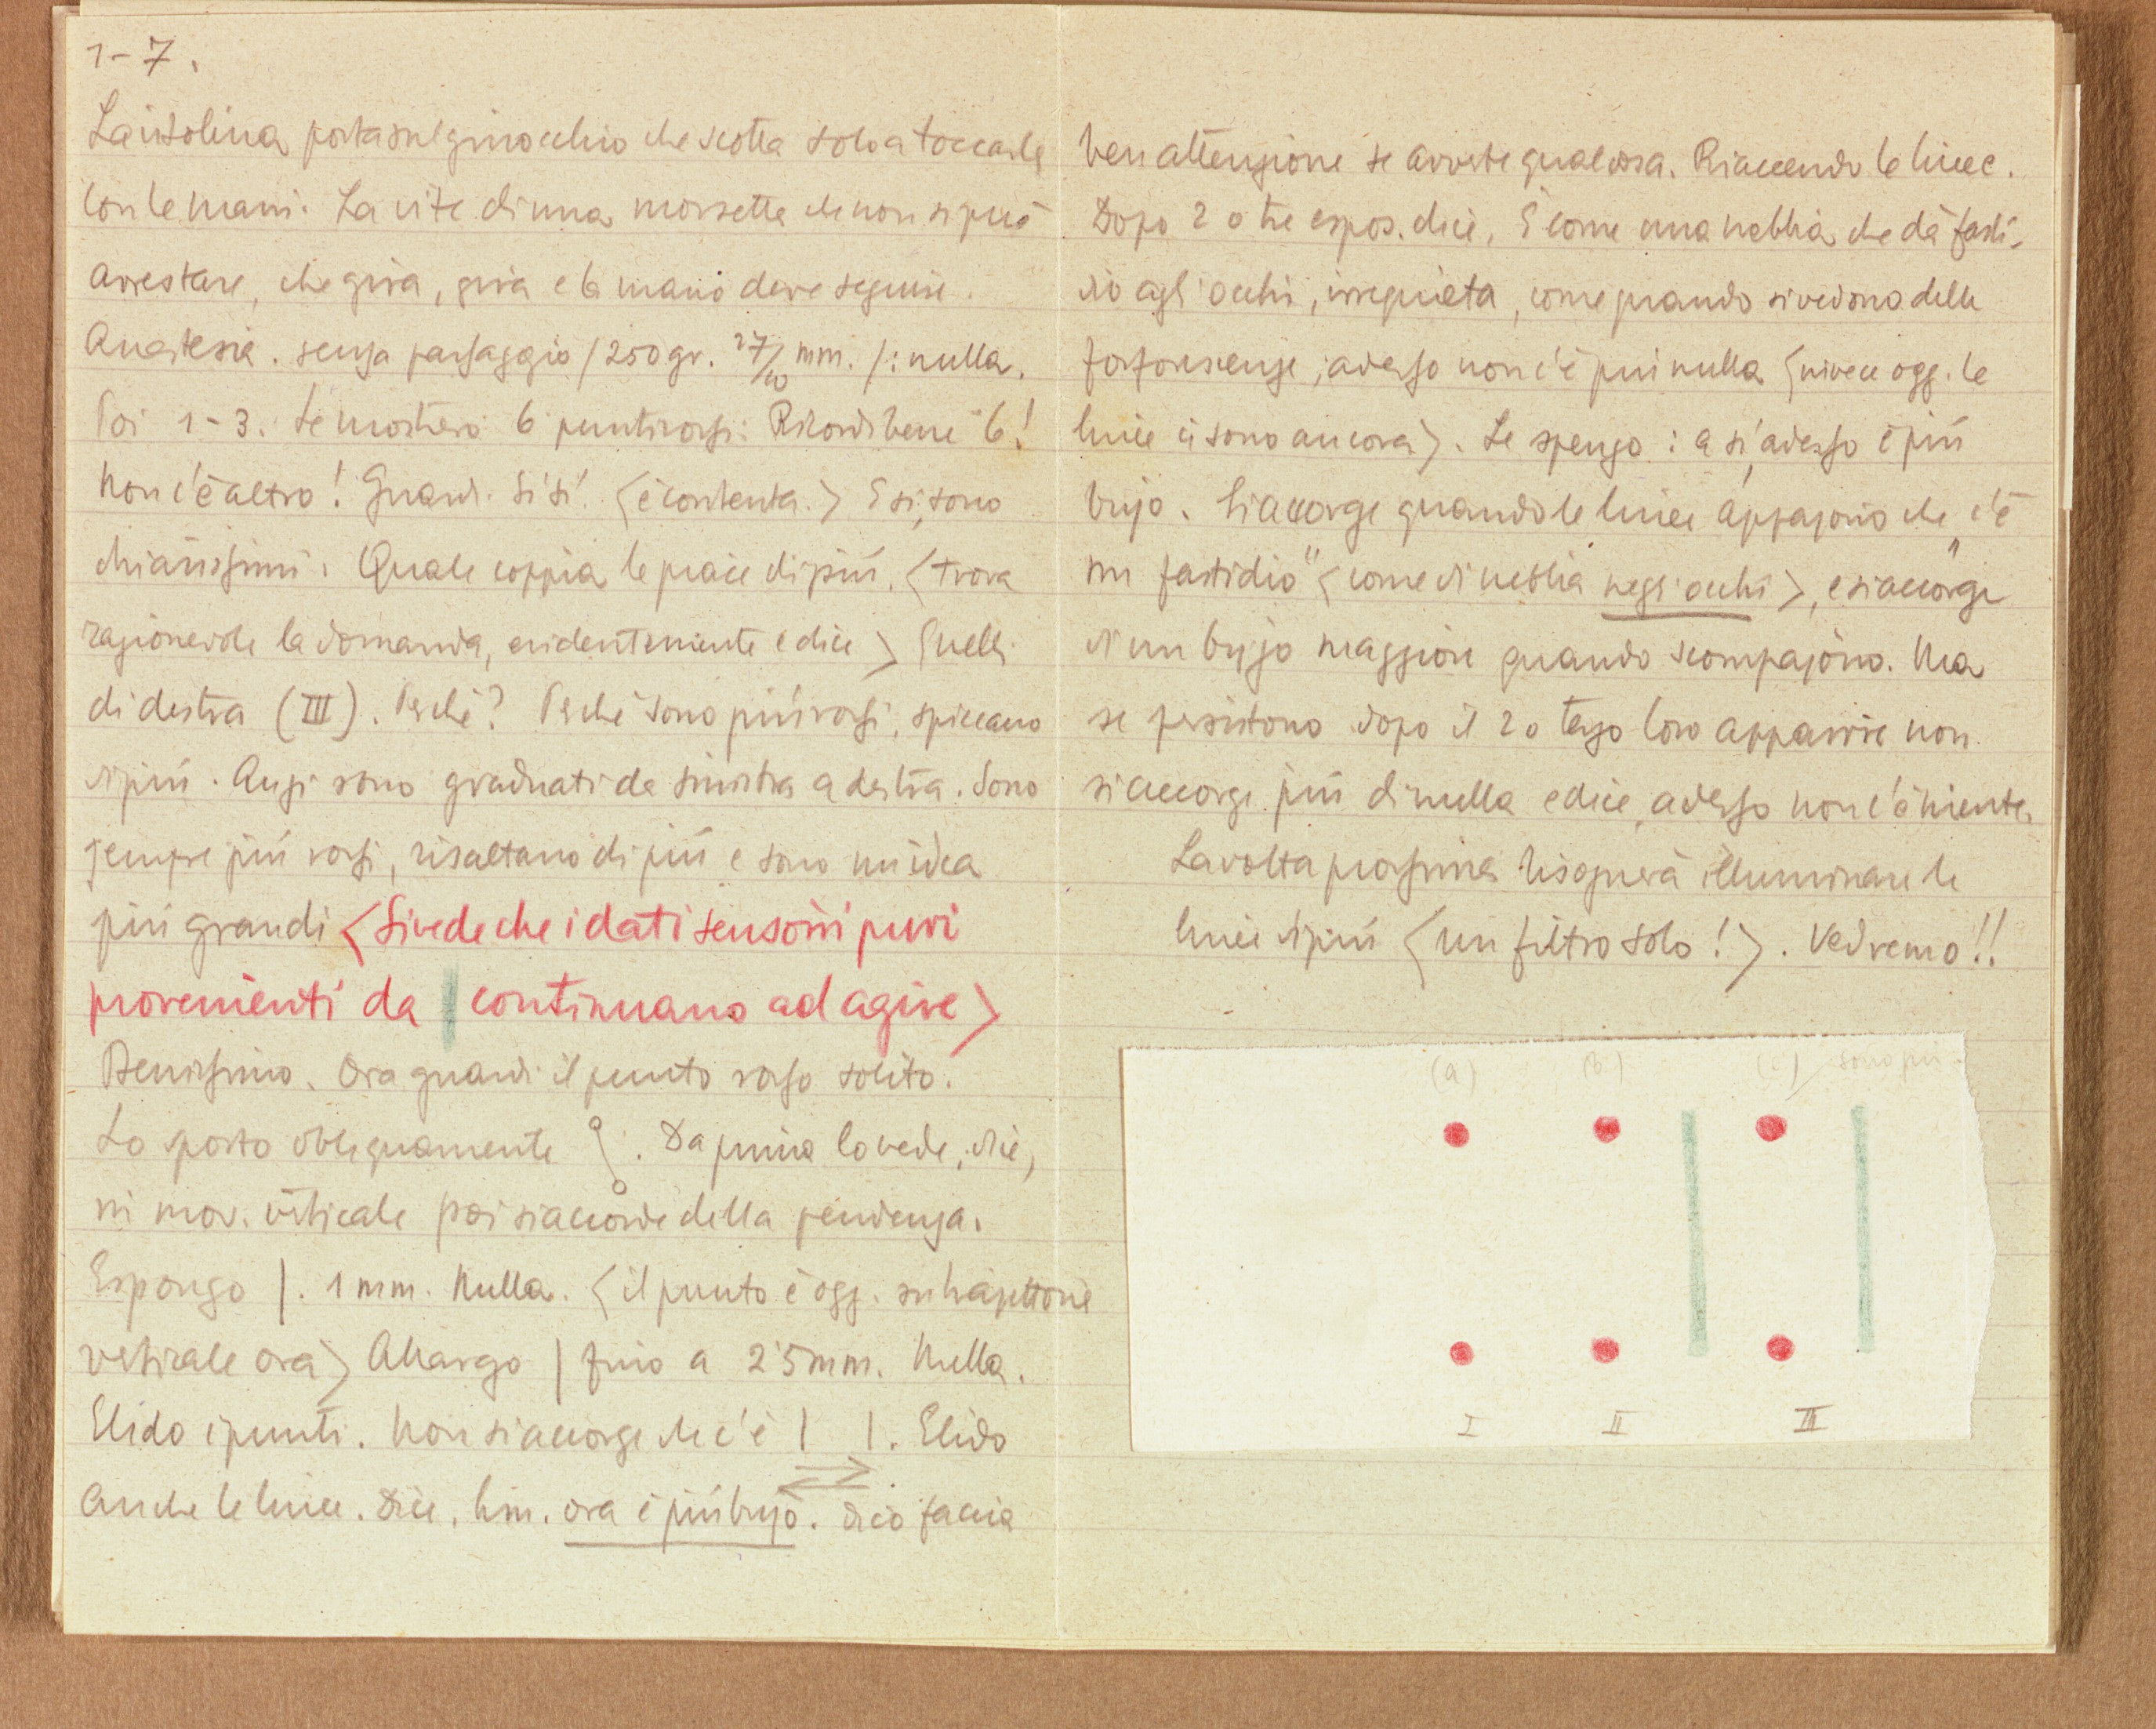 1-7.
porta sul ginocchio che scotta solo a toccarla
con le mani. La vite di una morsetta che non si può
arrestare, che gira, gira e la mano deve seguire.
Anestesia. senza passaggio /250 gr. 27/10 mm./: nulla.
Poi 1-3. Le mostrerò 6 punti rossi: Ricordi bene 6!
Non c'è altro! Guardi. Sì sì! <è contenta.> E sì, sono
chiarissimi. Quale coppia le piace di più. <trova
ragionevole la domanda, evidentemente e dice> Quelli
di destra (III). Perché? Perché sono più rossi, spiccano
di più. Anzi sono graduati da sinistra a destra. Sono
sempre più rossi, risaltano di più e sono un'idea
più grandi <Si vede che i dati sensori puri
provenienti da | continuano ad agire>
Benissimo. Ora guardi il punto rosso solito.
Lo sposto obliquamente. Da prima lo vede, dice,
in mov. verticale poi si accorde della pendenza.
Espongo |. 1 mm. Nulla. <il punto è ogg. su
verticale ora> Allargo | fino a 25 mm. Nulla.
Elido i punti. Non si accorge che c'è | |. Elido
anche le linee. Dice, hm. ora è più bujo. Dico faccia
ben attenzione se avverte qualcosa. Riaccendo le linee.
Dopo 2 o tre espos. dice, È come una nebbia che dà fasti-
dio agli occhi, irrequieta, come quando si vedono delle
fosforescenze; adesso non c'è più nulla <invece ogg. le
linee ci sono ancora>. Le spengo: a sì, adesso è più
bujo. Si accorge quando le linee appajono che "c'è
un fastidio" <come di nebbia negli occhi>, e si accorge
di un bujo maggiore quando scompajono. Ma
se persistono dopo il 2 o terzo loro apparire non
si accorge più di nulla e dice, adesso non c'è niente.
La volta prossima bisognerà illuminare le
linee di più <un filtro solo!>. Vedremo!!
(a) (b) (c) sono più
I II III